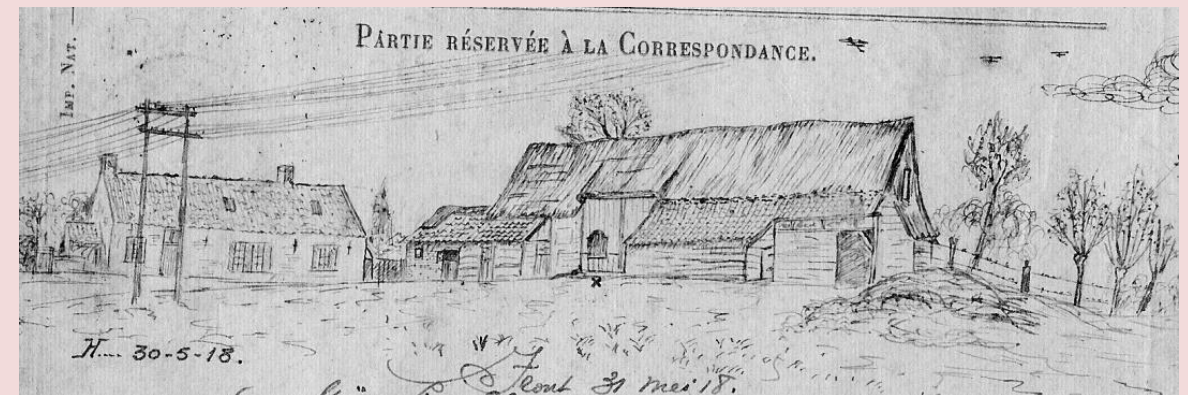 IMP. NAT. —
PARTIE RÉSERVÉE À LA CORRESPONDANCE.
H.... 30-5-18.
Front 31 mei 18.